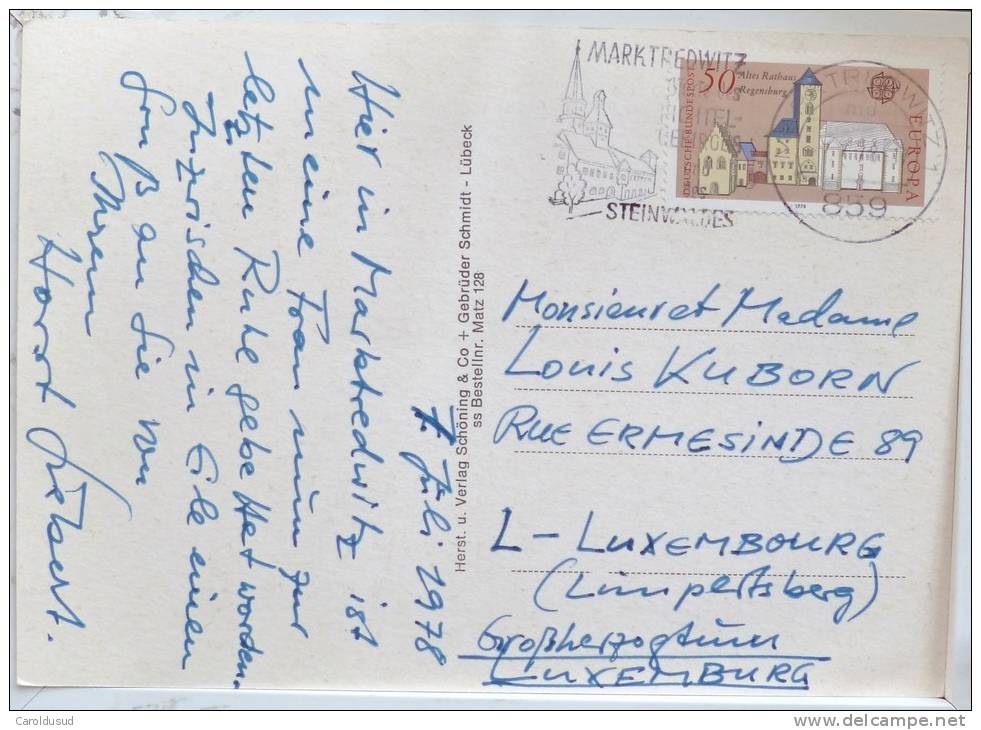 7. Juli 1978
Hier in Marktredwitz ist
meine Frau nun zur
letzten Ruhe gebettet worden.
Inzwischen in Eile einen
Gruß an Sie von
Ihrem
Horst
Herst. u. Verlag Schöning & Co + Gebrüder Schmidt - Lübeck
ss Bestellnr. Matz 128
MARKTREDWITZ
STEINWALDES
DEUTSCHE BUNDESPOST
50
Altes Rathaus
Regensburg
EUROPA
1978
859
Monsieur et Madame
Louis KUBORN
RUE ERMESINDE 89
L-LUXEMBOURG
(Limpertsberg)
Großherzogtum
LUXEMBURG
Caroldusud
www.delcampe.net